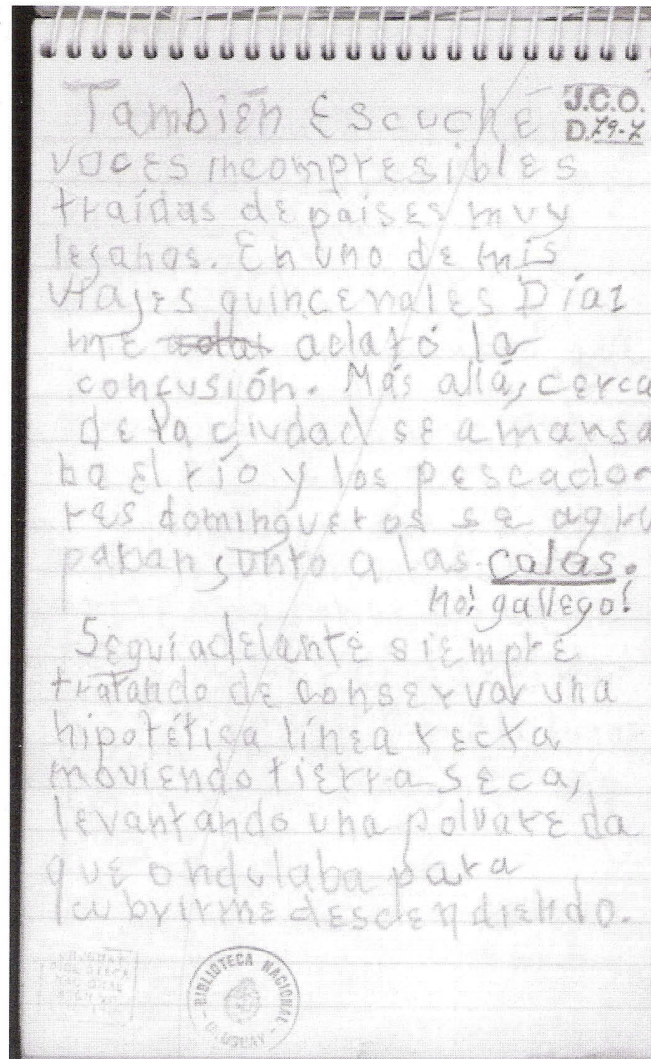 También escuché
J.C.O.
D.79-7
voces incompresibles
traídas de países muy
lejanos. En uno de mis
viajes quincenales Díaz
me aclaró la
confusión. Más allá, cerca
de la ciudad se amansa
ba el río y los pescado
res domingueros se agru
paban junto a las calas.
no! gallego!
Seguí adelante siempre
tratando de conservar una
hipotética línea recta
moviendo tierra seca,
levantando una polvareda
que ondulaba para
cubrirme descendiendo.
BIBLIOTECA NACIONAL
URUGUAY